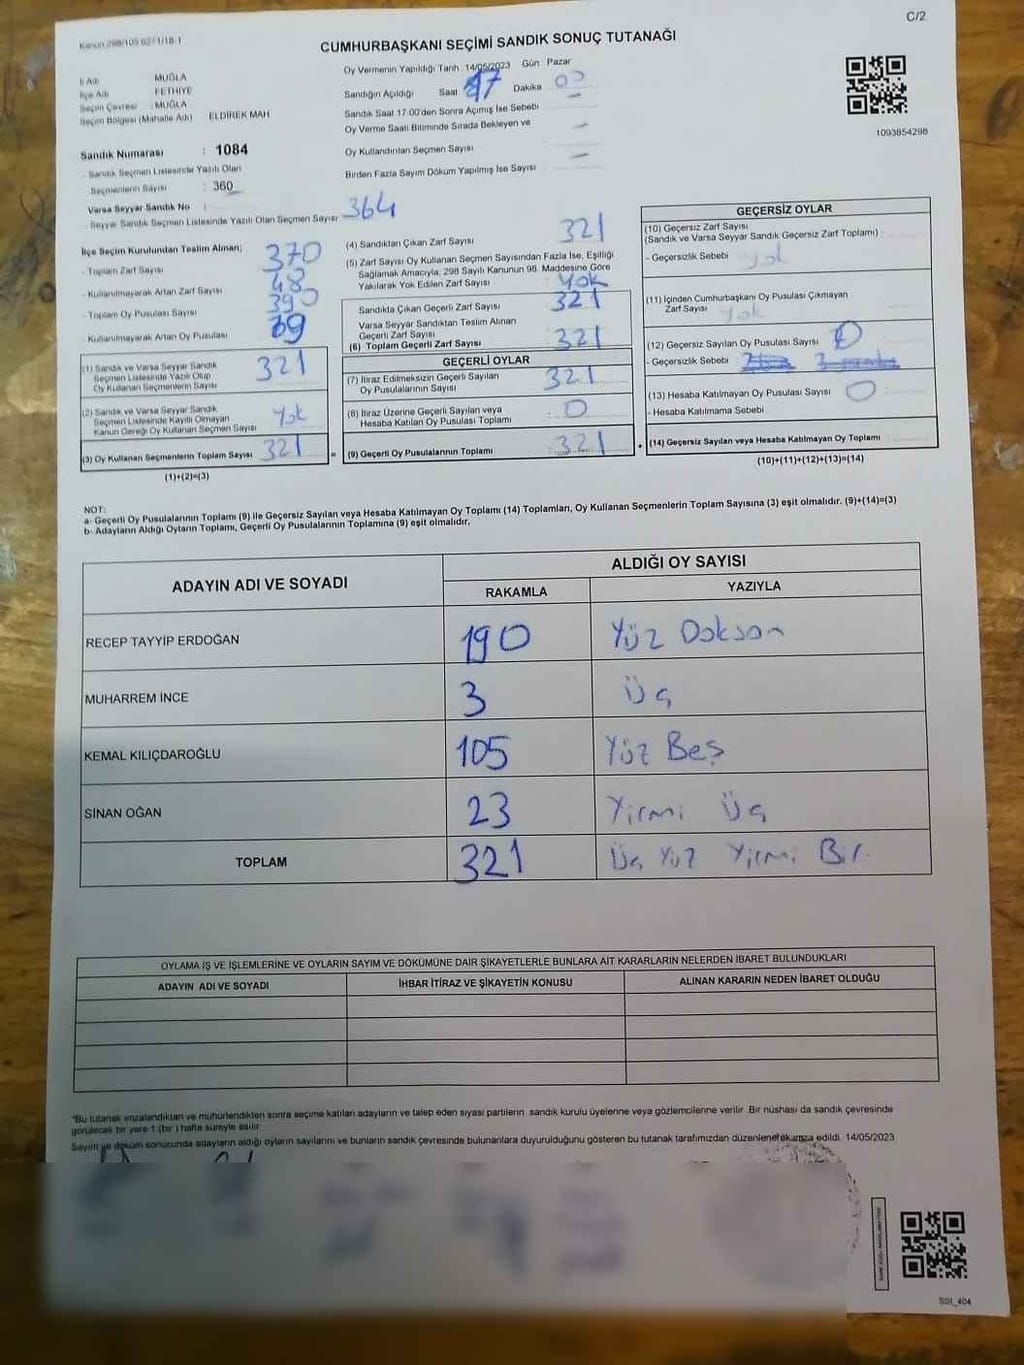 C/2
Kanun:298/105 6271/18-1
CUMHURBAŞKANI SEÇİMİ SANDIK SONUÇ TUTANAĞI
İl Adı MUĞLA
İlçe Adı FETHİYE
Seçim Çevresi : MUĞLA
Seçim Bölgesi (Mahalle Adı) ELDİREK MAH
Sandık Numarası : 1084
Sandık Seçmen Listesinde Yazılı Olan
Seçmenlerin Sayısı : 360
Varsa Seyyar Sandık No :
Seyyar Sandık Seçmen Listesinde Yazılı Olan Seçmen Sayısı 364
Oy Vermenin Yapıldığı Tarih 14/05/2023 Gün Pazar
Sandığın Açıldığı Saat 17 Dakika 00
Sandık Saat 17.00'den Sonra Açımış İse Sebebi
Oy Verme Saati Bitiminde Sırada Bekleyen ve
Oy Kullandırılan Seçmen Sayısı
Birden Fazla Sayım Döküm Yapılmış İse Sayısı
1093854298
İlçe Seçim Kurulundan Teslim Alınan;
- Toplam Zarf Sayısı 370
- Kullanılmayarak Artan Zarf Sayısı 48
- Toplam Oy Pusulası Sayısı 390
- Kullanılmayarak Artan Oy Pusulası
(1) Sandık ve Varsa Seyyar Sandık
Seçmen Listesinde Yazılı Olup
Oy Kullanan Seçmenlerin Sayısı 321
(2) Sandık ve Varsa Seyyar Sandık
Seçmen Listesinde Kayıtlı Olmayan
Kanun Gereği Oy Kullanan Seçmen Sayısı Yok
(3) Oy Kullanan Seçmenlerin Toplam Sayısı 321
(1)+(2)=(3)
(4) Sandıktan Çıkan Zarf Sayısı 321
(5) Zarf Sayısı Oy Kullanan Seçmen Sayısından Fazla İse, Eşitliği
Sağlamak Amacıyla, 298 Sayılı Kanunun 98. Maddesine Göre
Yakılarak Yok Edilen Zarf Sayısı : Yok
Sandıkta Çıkan Geçerli Zarf Sayısı 321
Varsa Seyyar Sandıktan Teslim Alınan
Geçerli Zarf Sayısı
(6) Toplam Geçerli Zarf Sayısı 321
GEÇERLİ OYLAR
(7) İtiraz Edilmeksizin Geçerli Sayılan
Oy Pusulalarının Sayısı 321
(8) İtiraz Üzerine Geçerli Sayılan veya
Hesaba Katılan Oy Pusulası Toplamı : 0
(9) Geçerli Oy Pusulalarının Toplamı 321
GEÇERSİZ OYLAR
(10) Geçersiz Zarf Sayısı
(Sandık ve Varsa Seyyar Sandık Geçersiz Zarf Toplamı) :
- Geçersizlik Sebebi Yok
(11) İçinden Cumhurbaşkanı Oy Pusulası Çıkmayan
Zarf Sayısı Yok
(12) Geçersiz Sayılan Oy Pusulası Sayısı
- Geçersizlik Sebebi
(13) Hesaba Katılmayan Oy Pusulası Sayısı 0
- Hesaba Katılmama Sebebi
(14) Geçersiz Sayılan veya Hesaba Katılmayan Oy Toplamı
(10)+(11)+(12)+(13)=(14)
NOT:
a- Geçerli Oy Pusulalarının Toplamı (9) ile Geçersiz Sayılan veya Hesaba Katılmayan Oy Toplamı (14) Toplamları, Oy Kullanan Seçmenlerin Toplam Sayısına (3) eşit olmalıdır. (9)+(14)=(3)
b- Adayların Aldığı Oyların Toplamı, Geçerli Oy Pusulalarının Toplamına (9) eşit olmalıdır.
ADAYIN ADI VE SOYADI ALDIĞI OY SAYISI
RAKAMLA YAZIYLA
RECEP TAYYİP ERDOĞAN 190 Yüz Doksan
MUHARREM İNCE 3 Üç
KEMAL KILIÇDAROĞLU 105 Yüz Beş
SİNAN OĞAN 23 Yirmi Üç
TOPLAM 321 Üç Yüz Yirmi Bir.
OYLAMA İŞ VE İŞLEMLERİNE VE OYLARIN SAYIM VE DÖKÜMÜNE DAİR ŞİKAYETLERLE BUNLARA AİT KARARLARIN NELERDEN İBARET BULUNDUKLARI
ADAYIN ADI VE SOYADI İHBAR İTİRAZ VE ŞİKAYETİN KONUSU ALINAN KARARIN NEDEN İBARET OLDUĞU
"Bu tutanak imzalandıktan ve mühürlendikten sonra seçime katılan adayların ve talep eden siyasi partilerin sandık kurulu üyelerine veya gözlemcilerine verilir. Bir nüshası da sandık çevresinde
görülecek bir yere 1 (bir) hafta süreyle asılır.
Sayım ve döküm sonucunda adayların aldığı oyların sayılarını ve bunların sandık çevresinde bulunanlara duyurulduğunu gösteren bu tutanak tarafımızdan düzenlenerek imza edildi. 14/05/2023
SSI_404